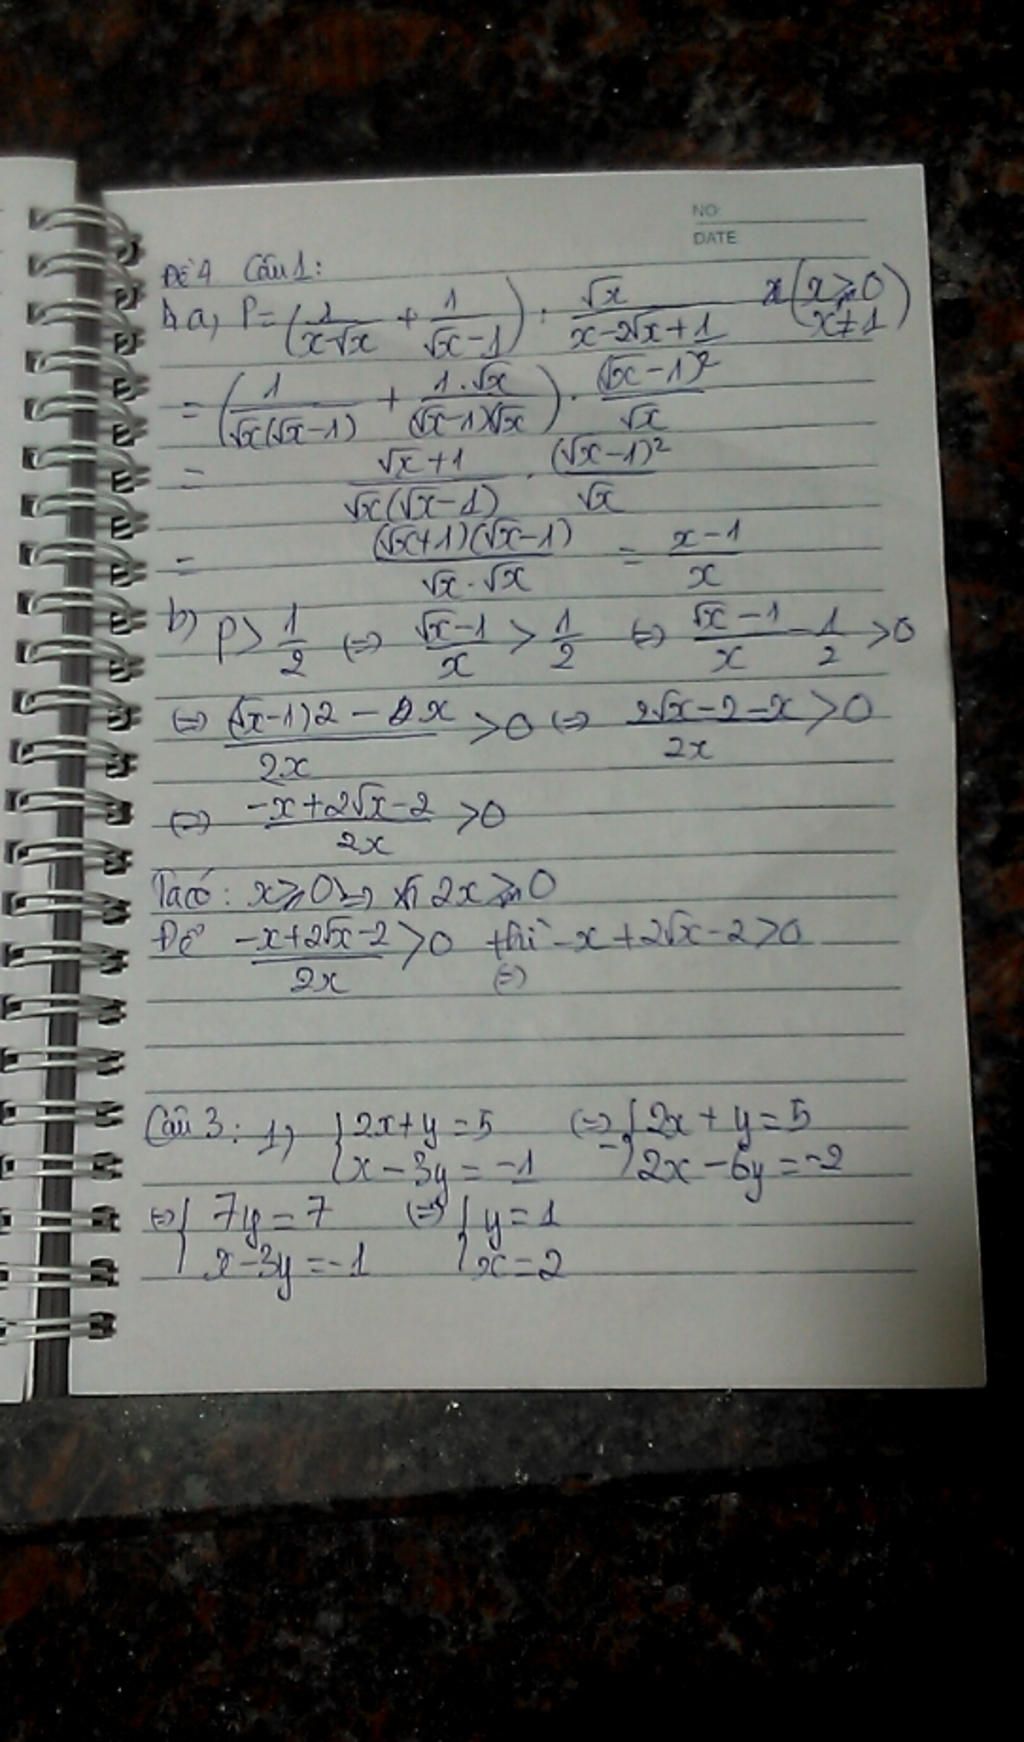 NO
DATE
ĐỀ 4 Câu 1:
a, P = (1/(x-√x) + 1/(√x-1)) : √x/(x-2√x+1) (x ≥ 0 x ≠ 1)
= (1/(√x(√x-1)) + 1.√x/((√x-1)√x)) . (√x-1)²/√x
= (√x+1)/(√x(√x-1)) . (√x-1)²/√x
= (√x+1)(√x-1)/(√x.√x) = (x-1)/x
b) P > 1/2 (=) (√x-1)/x > 1/2 (=) (√x-1)/x - 1/2 > 0
(=) ((√x-1)2 - x)/2x > 0 (=) (2√x-2-x)/2x > 0
(=) (-x+2√x-2)/2x > 0
Ta có: x ≥ 0 => 2x ≥ 0
Để (-x+2√x-2)/2x > 0 thì -x+2√x-2 > 0
(=)
Câu 3: 1, { 2x+y=5 (=) { 2x+y=5
x-3y=-1 - 2x-6y=-2
(=) { 7y=7 (=) { y=1
x-3y=-1 x=2